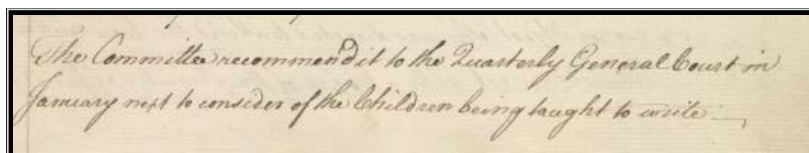 The Committee recommend it to the Quarterly General Court in
January next to consider of the Children being taught to write.